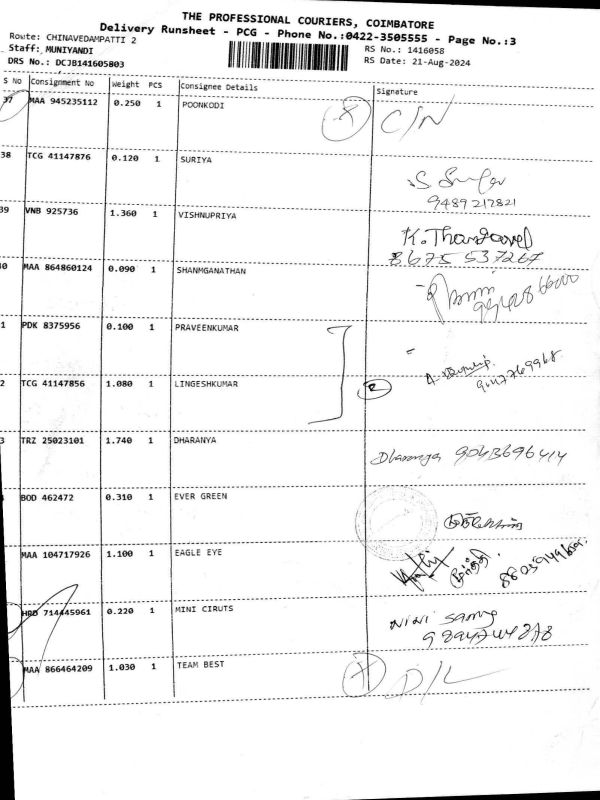 THE PROFESSIONAL COURIERS, COIMBATORE
Delivery Runsheet - PCG - Phone No.:0422-3505555 - Page No.:3
Route: CHINAVEDAMPATTI 2
Staff: MUNIYANDI
DRS No.: DCJB141605803
RS No.: 1416058
RS Date: 21-Aug-2024
S No Consignment No Weight PCS Consignee Details Signature
37 MAA 945235112 0.250 1 POONKODI X C/N
38 TCG 41147876 0.120 1 SURIYA
9489217821
39 VNB 925736 1.360 1 VISHNUPRIYA K. Thangavel
8675537267
0 MAA 864860124 0.090 1 SHANMGANATHAN
1 PDK 8375956 0.100 1 PRAVEENKUMAR
2 TCG 41147856 1.080 1 LINGESHKUMAR 2
3 TRZ 25023101 1.740 1 DHARANYA Dharanya 9043696414
BOD 462472 0.310 1 EVER GREEN
MAA 104717926 1.100 1 EAGLE EYE
HBD 714445961 0.220 1 MINI CIRUTS
MAA 866464209 1.030 1 TEAM BEST X D/L